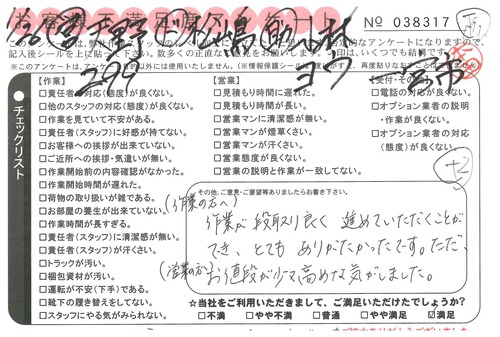 № 038317
このアンケートは、
記入後シールを上に貼って下さい。多数の正直なご意見をお願いします。
※このアンケートは、
【作業】
□責任者の対応(態度)が良くない。
□他のスタッフの対応(態度)が良くない。
□作業を見ていて不安がある。
□責任者(スタッフ)に好感が持てない。
□お客様への挨拶が出来ていない。
□ご近所への挨拶・気遣いが無い。
□作業開始前の内容確認がなかった。
□作業開始時間が遅れた。
□荷物の取り扱いが雑である。
□お部屋の養生が出来ていない。
□作業時間が長すぎる。
□責任者(スタッフ)に清潔感が無い。
□責任者(スタッフ)が汗くさい。
□トラックが汚い。
□梱包資材が汚い。
□運転が不安(下手)である。
□靴下の履き替えをしてない。
□スタッフにやる気が感じられない。
チェックリスト
【営業】
□見積もり時間に遅れた。
□見積もり時間が長い。
□営業マンに清潔感が無い。
□営業マンが煙草くさい。
□営業マンが汗くさい。
□営業態度が良くない。
□営業の説明と作業が一致してない。
□電話の対応が良くない。
□オプション業者の説明
・作業が良くない。
□オプション業者の対応
(態度)が良くない。
+2
その他、ご意見・ご要望等ありましたらお書き下さい。
(作業の方へ)
作業が段取り良く進めていただくことが
でき、とてもありがたかったです。ただ、
(営業の方へ)
お値段が少々高めな気がしました。
☆当社をご利用いただきまして、ご満足いただけたでしょうか?
□不満 □やや不満 □普通 □やや満足 ☑満足